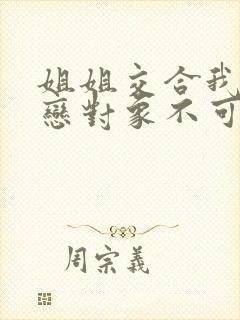 姐姐交合我
戀對象不可
周宗義